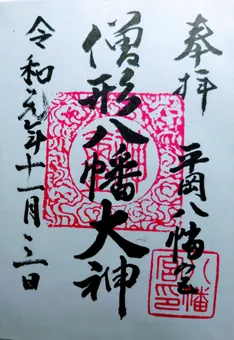 奉拝
平岡八幡宮
僧形八幡大神
令和元年十一月三日
八幡宮印